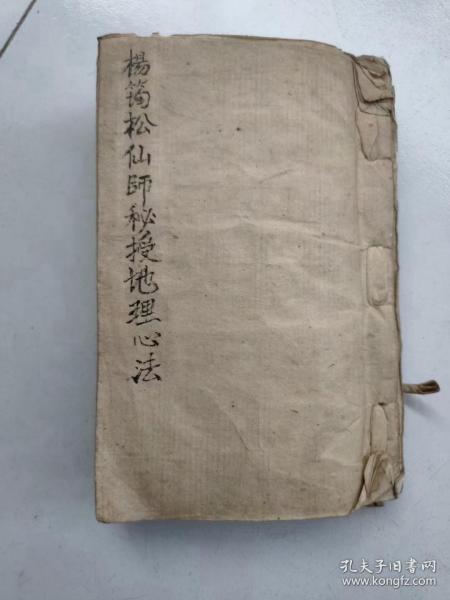 楊筠松仙師秘授地理心法
孔夫子旧书网
www.kongfz.com